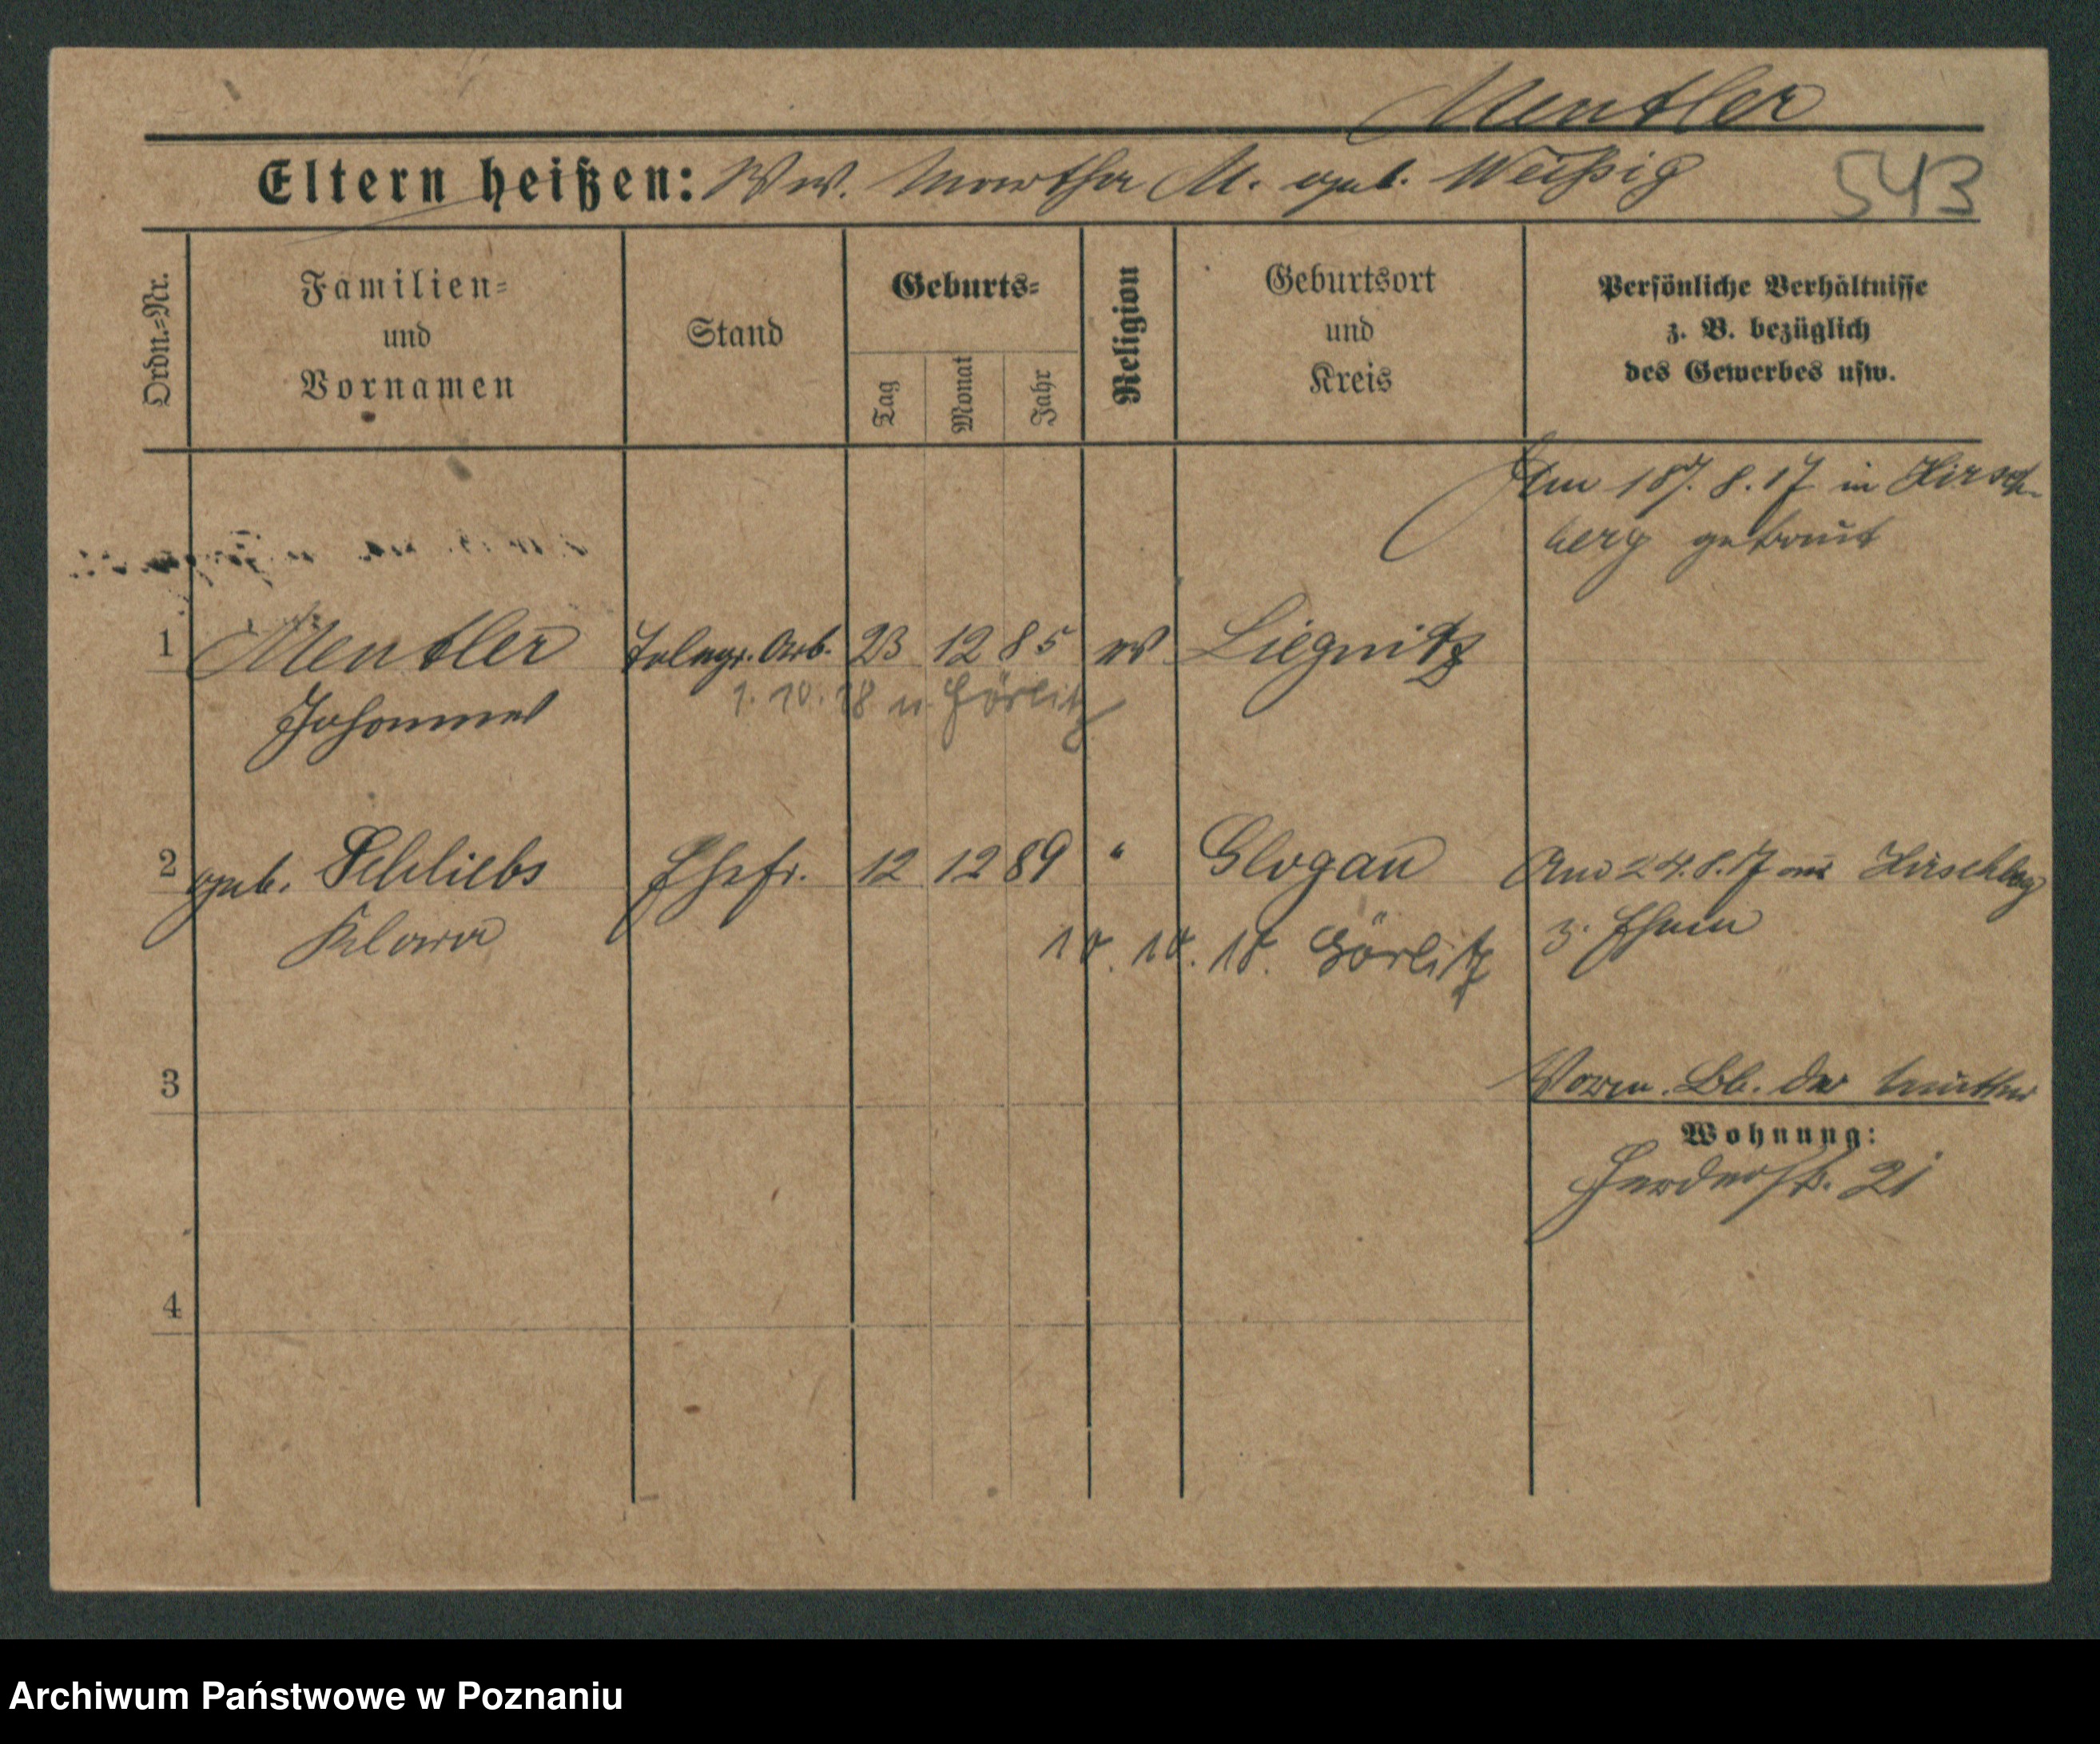 Mentler
Eltern heißen: Ww. Martha M. geb. Weißig 543
Ordn.-Nr.
Familien-
und
Vornamen
Stand
Geburts-
Tag
Monat
Jahr
Religion
Geburtsort
und
Kreis
Persönliche Verhältnisse
z. B. bezüglich
des Gewerbes usw.
Am 18. 8. 17 in Hirsch-
berg getraut
1 Mentler Telegr. Arb. 23 12 85 ev Liegnitz
1. 10. 18 n. Görlitz
Johannes
2 geb. Schliebs Ehefr. 12 12 89 " Glogau
And 24. 8. 17 aus Hirschberg
Klara
z. Ehem
10. 10. 18. Görlitz
3
Vorm. Bb. der Mutter
Wohnung:
Herderstr. 21
4
Archiwum Państwowe w Poznaniu